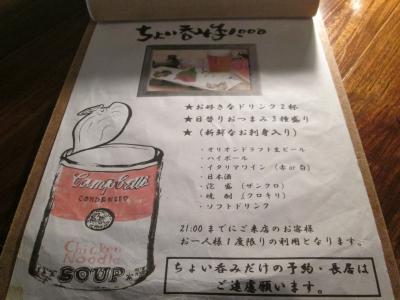 ちょい呑み¥1,000
★お好きなドリンク2杯
★日替りおつまみ3種盛り
★(新鮮なお刺身入り)
・オリオンドラフト生ビール
・ハイボール
・イタリアワイン (赤or白)
・日本酒
・泡盛 (ザンクロ)
・焼酎 (クロキリ)
・ソフトドリンク
21:00 までにご来店のお客様
お一人様1度限りの利用となります。
ちょい呑みだけの予約・長居は
ご遠慮願います。
Campbell's
CONDENSED
Chicken
Noodle
SOUP